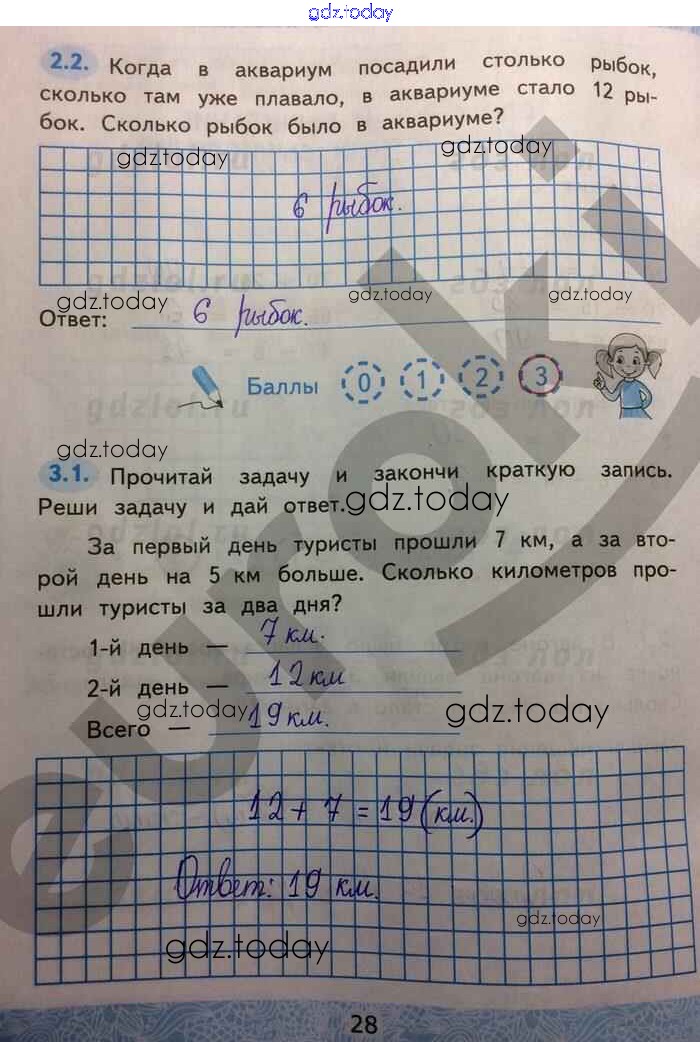 gdz.today
2.2. Когда в аквариум посадили столько рыбок,
сколько там уже плавало, в аквариуме стало 12 ры-
бок. Сколько рыбок было в аквариуме?
gdz.today gdz.today
6 рыбок.
gdz.today gdz.today gdz.today
Ответ: 6 рыбок.
Баллы 0 1 2 3
gdz.today
3.1. Прочитай задачу и закончи краткую запись.
Реши задачу и дай ответ. gdz.today
За первый день туристы прошли 7 км, а за вто-
рой день на 5 км больше. Сколько километров про-
шли туристы за два дня?
1-й день — 7 км.
2-й день — 12 км
gdz.today gdz.today
Всего — 19 км.
12 + 7 = 19 (км.)
Ответ: 19 км.
gdz.today
gdz.today
28
euroki